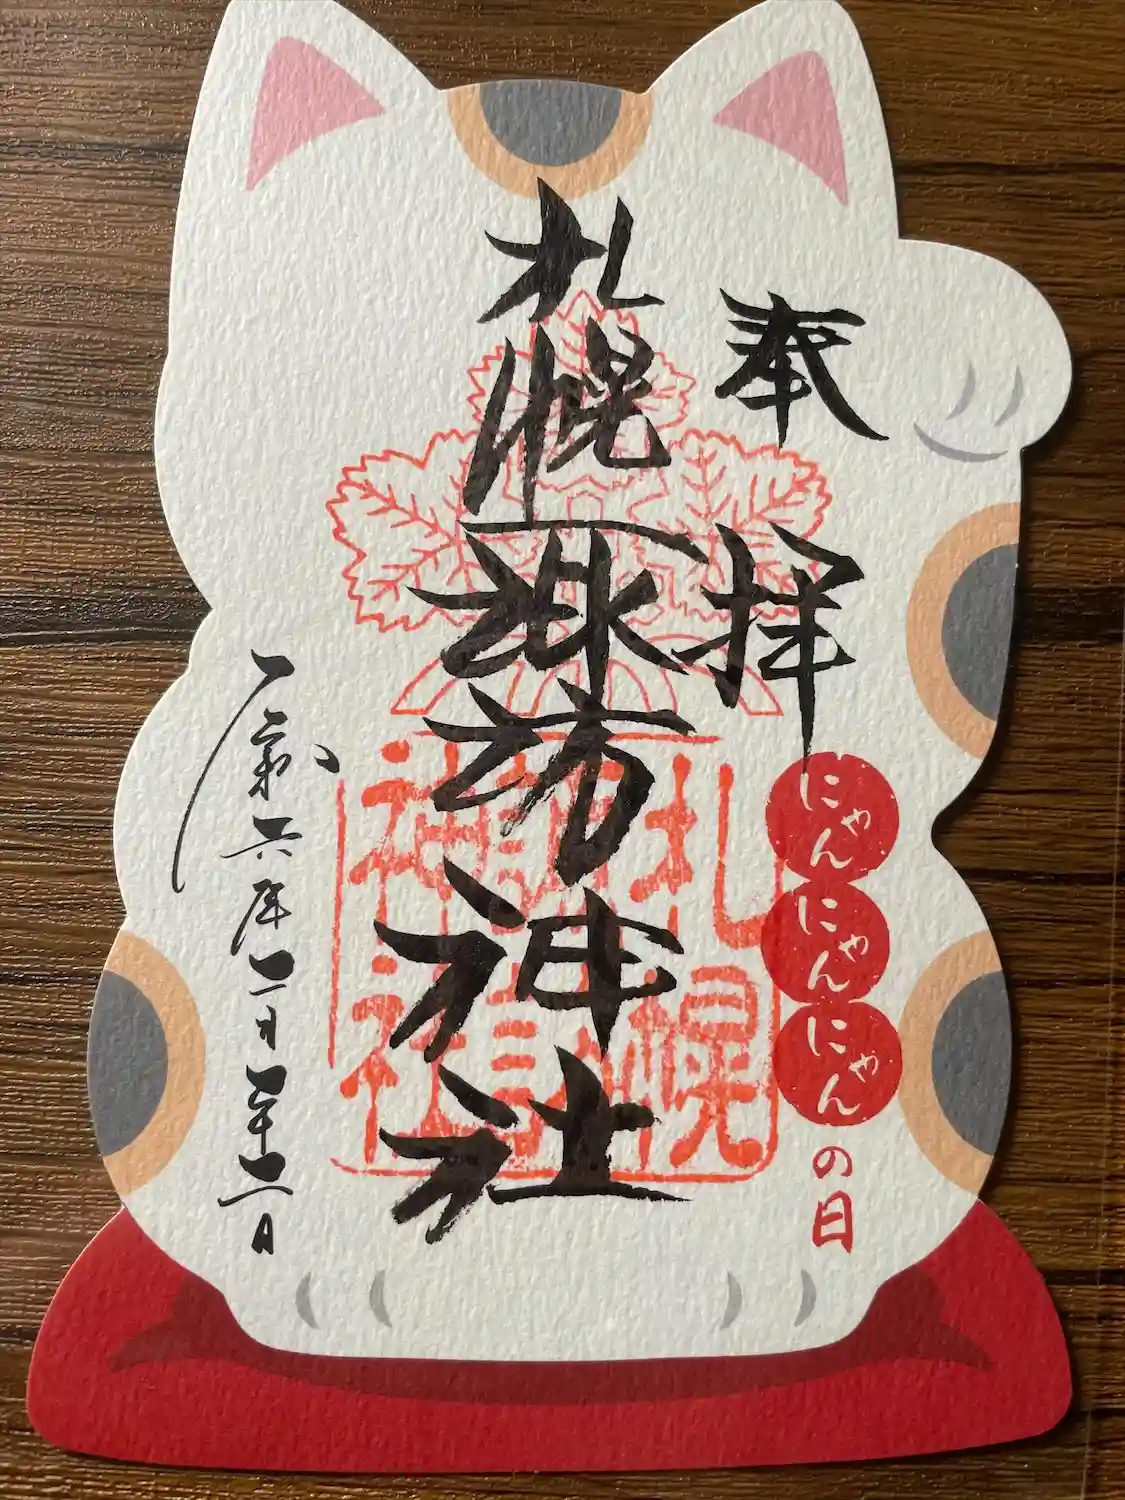 奉拝
にゃん
にゃん
にゃん
の日
札幌諏訪神社
札幌
諏訪
神社
令和六年二月二十二日